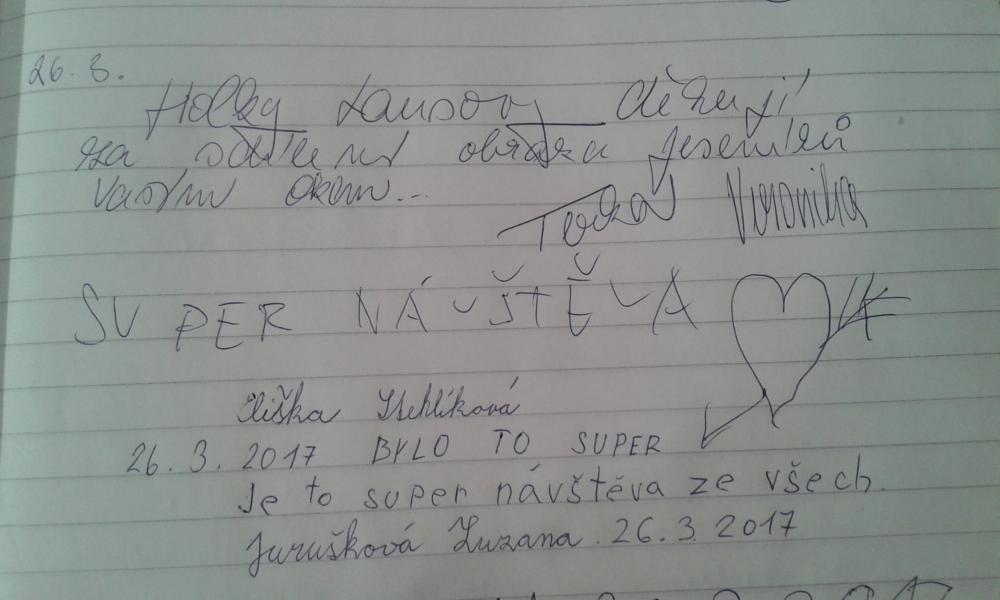 26. 3.
Holky Lausovy děkují
za sdílení obrazu Jeseníků
Vaším okem...
Terka Veronika
SUPER NÁVŠTĚVA
Eliška Stehlíková
26. 3. 2017 BYLO TO SUPER
Je to super návštěva ze všech.
Jurušková Zuzana. 26. 3. 2017